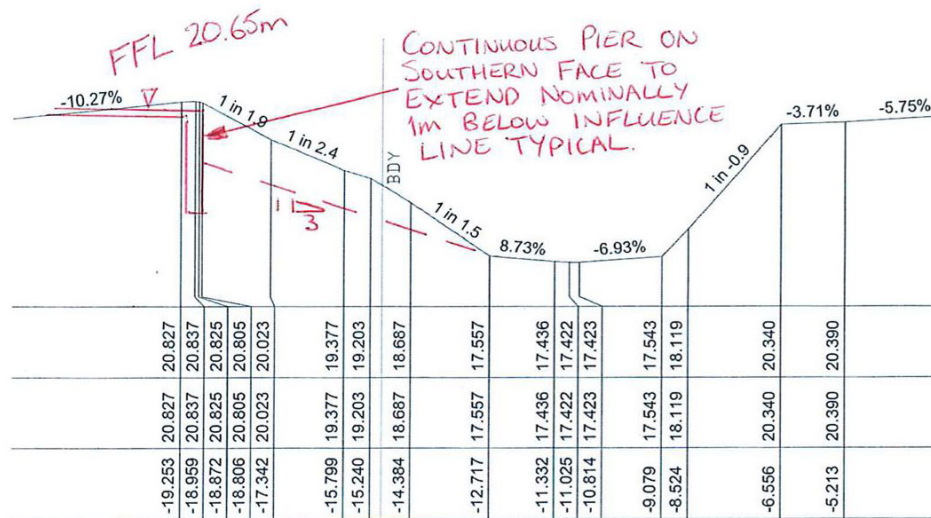 FFL 20.65m
CONTINUOUS PIER ON
SOUTHERN FACE TO
EXTEND NOMINALLY
1m BELOW INFLUENCE
LINE TYPICAL.
-10.27%
1 in 1.9
1 in 2.4
BDY
1 in 1.5
8.73%
-6.93%
1 in -0.9
-3.71%
-5.75%
1
3
20.827 20.837 20.825 20.805 20.023 19.377 19.203 18.687 17.557 17.436 17.422 17.423 17.543 18.119 20.340 20.390
20.827 20.837 20.825 20.805 20.023 19.377 19.203 18.687 17.557 17.436 17.422 17.423 17.543 18.119 20.340 20.390
-19.253 -18.959 -18.872 -18.806 -17.342 -15.799 -15.240 -14.384 -12.717 -11.332 -11.025 -10.814 -9.079 -8.524 -6.556 -5.213